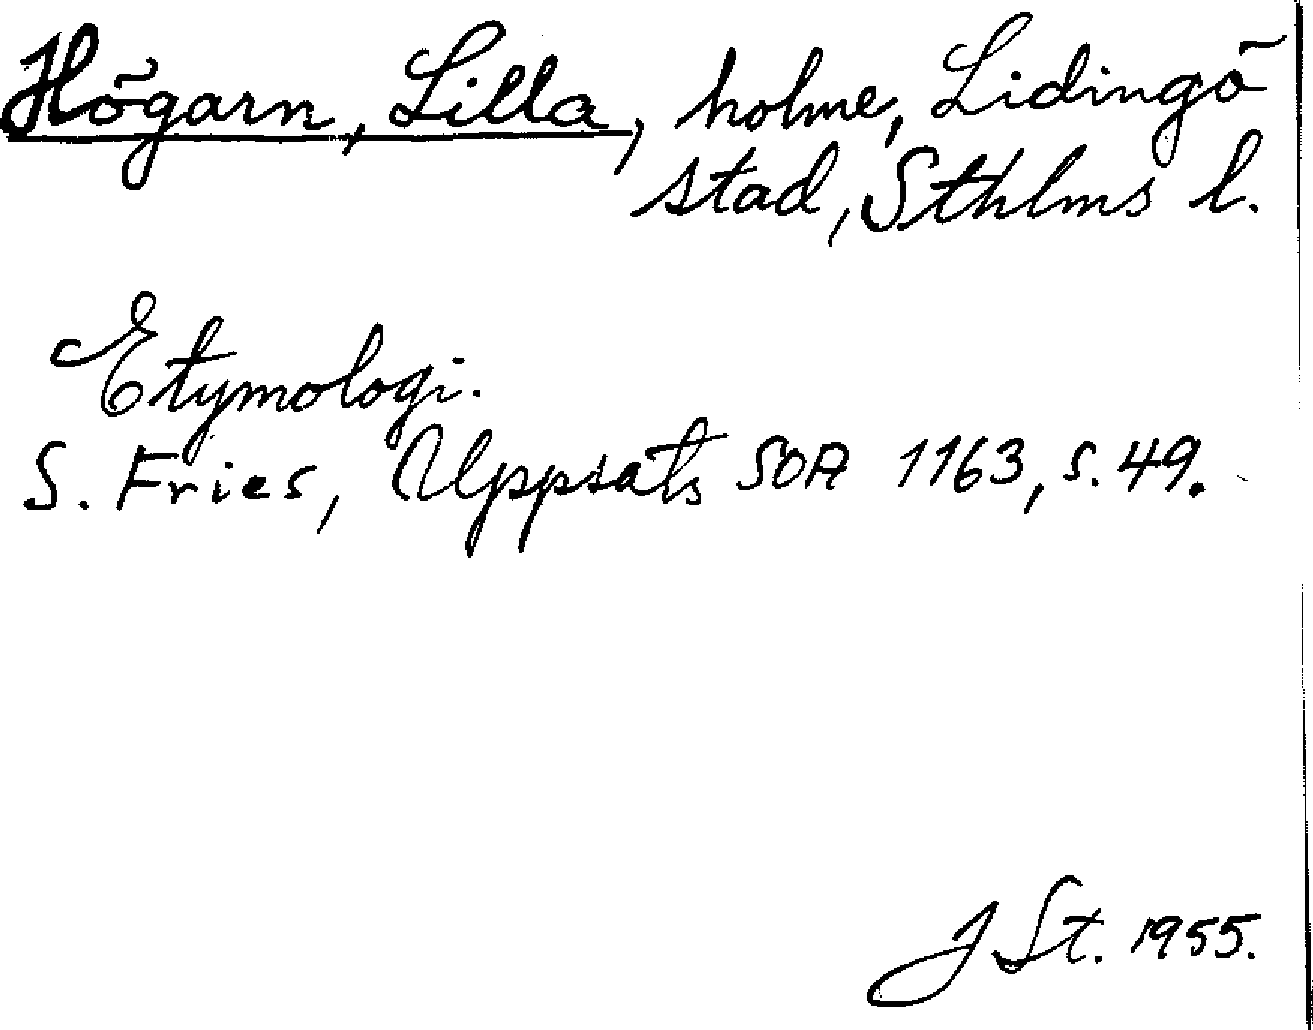 Högarn, Lilla, holme, Lidingö
stad, Sthlms l.
Etymologi.
S. Fries, Uppsats SOA 1163, s. 49.
J St. 1955.